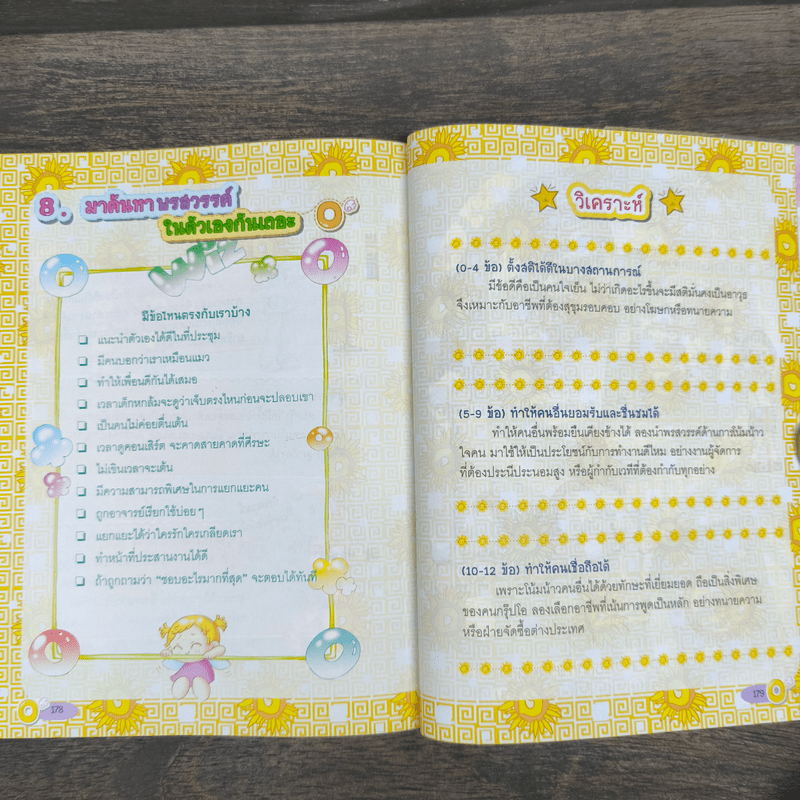 8. มาค้นหาพรสวรรค์
ในตัวเองกันเถอะ O
มีข้อไหนตรงกับเราบ้าง
แนะนำตัวเองได้ดีในที่ประชุม
มีคนบอกว่าเราเหมือนแมว
ทำให้เพื่อนดีกันได้เสมอ
เวลาเด็กหกล้มจะดูว่าเจ็บตรงไหนก่อนจะปลอบเขา
เป็นคนไม่ค่อยตื่นเต้น
เวลาดูคอนเสิร์ต จะคาดสายคาดที่ศีรษะ
ไม่เขินเวลาจะเต้น
มีความสามารถพิเศษในการแยกแยะคน
ถูกอาจารย์เรียกใช้บ่อยๆ
แยกแยะได้ว่าใครรักใครเกลียดเรา
ทำหน้าที่ประสานงานได้ดี
ถ้าถูกถามว่า "ชอบอะไรมากที่สุด" จะตอบได้ทันที
178
วิเคราะห์
(0-4 ข้อ) ตั้งสติได้ดีในบางสถานการณ์
มีข้อดีคือเป็นคนใจเย็น ไม่ว่าเกิดอะไรขึ้นจะมีสติมั่นคงเป็นอาวุธ
จึงเหมาะกับอาชีพที่ต้องสุขุมรอบคอบ อย่างโฆษกหรือทนายความ
(5-9 ข้อ) ทำให้คนอื่นยอมรับและชื่นชมได้
ทำให้คนอื่นพร้อมยืนเคียงข้างได้ ลองนำพรสวรรค์ด้านการโน้มน้าว
ใจคน มาใช้ให้เป็นประโยชน์กับการทำงานดีไหม อย่างงานผู้จัดการ
ที่ต้องประนีประนอมสูง หรือผู้กำกับเวทีที่ต้องกำกับทุกอย่าง
(10-12 ข้อ) ทำให้คนเชื่อถือได้
เพราะโน้มน้าวคนอื่นได้ด้วยทักษะที่เยี่ยมยอด ถือเป็นสิ่งพิเศษ
ของคนกรุ๊ปโอ ลองเลือกอาชีพที่เน้นการพูดเป็นหลัก อย่างทนายความ
หรือฝ่ายจัดซื้อต่างประเทศ
179